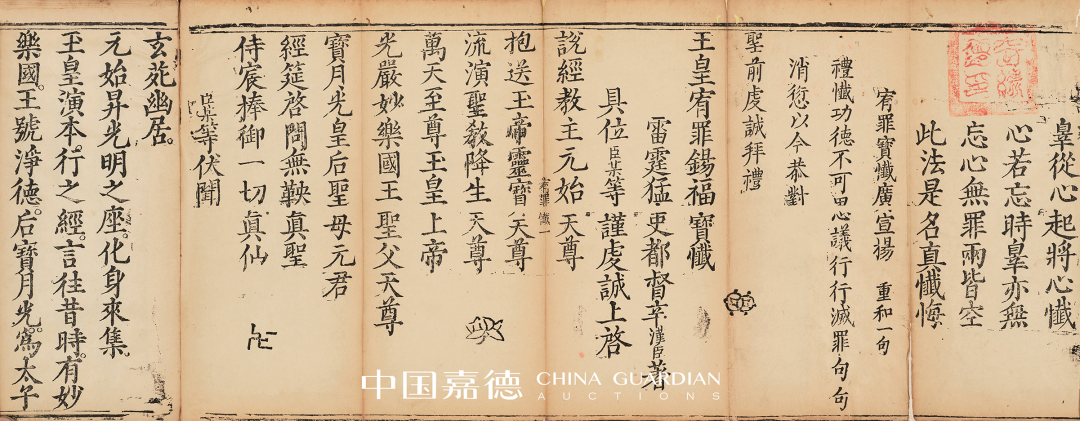 辠從心起將心懺
心若忘時辠亦無
忘心無罪兩皆空
此法是名真懺悔
宥罪寶懺廣宣揚 重和一句
禮懺功德不可思議行行滅罪句句
消愆以今恭對
聖前虔誠拜禮
玉皇宥罪錫福寶懺
雷霆猛吏都督辛漢臣著
具位臣某等謹虔誠上啓
說經教主元始天尊
宥罪懺一
抱送玉帝靈寶天尊
流演聖教降生天尊
萬天至尊玉皇上帝
光嚴妙樂國王聖父天尊
寶月光皇后聖母元君
經筵啓問無鞅真聖
侍宸捧御一切真仙
臣某等伏聞
玄苑幽居。
元始昇光明之座。化身來集。
玉皇演本行之經。言往昔時。有妙
樂國。王號淨德。后寶月光。為太子
中国嘉德 CHINA GUARDIAN
AUCTIONS